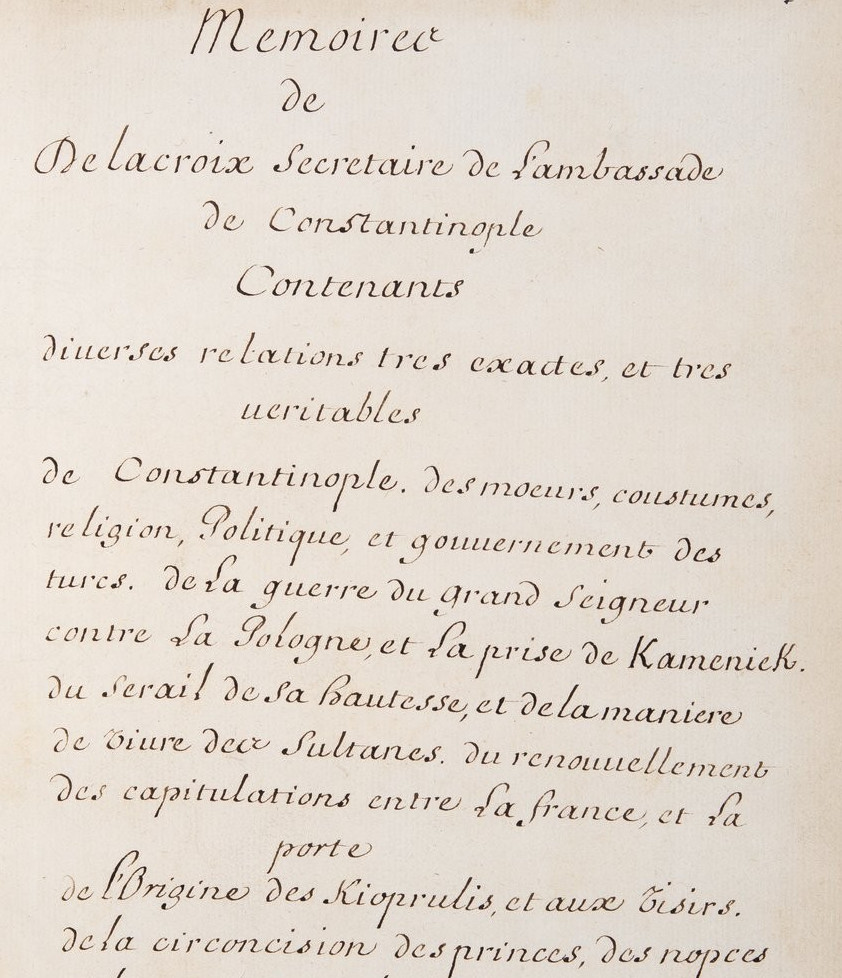 Memoires
de
Delacroix Secretaire de Lambassade
de Constantinople
Contenants
diuerses relations tres exactes, et tres
ueritables
de Constantinople. des moeurs, coustumes,
religion, Politique, et gouuernement des
turcs. de La guerre du grand Seigneur
contre La Pologne, et La prise de Kameniek.
du Serail de Sa hautesse, et de la maniere
de Viure des Sultanes. du renouuellement
des capitulations entre La france, et La
porte
de l'Origine des Kioprulis, et aux Visirs.
de la circoncision des princes, des nopces